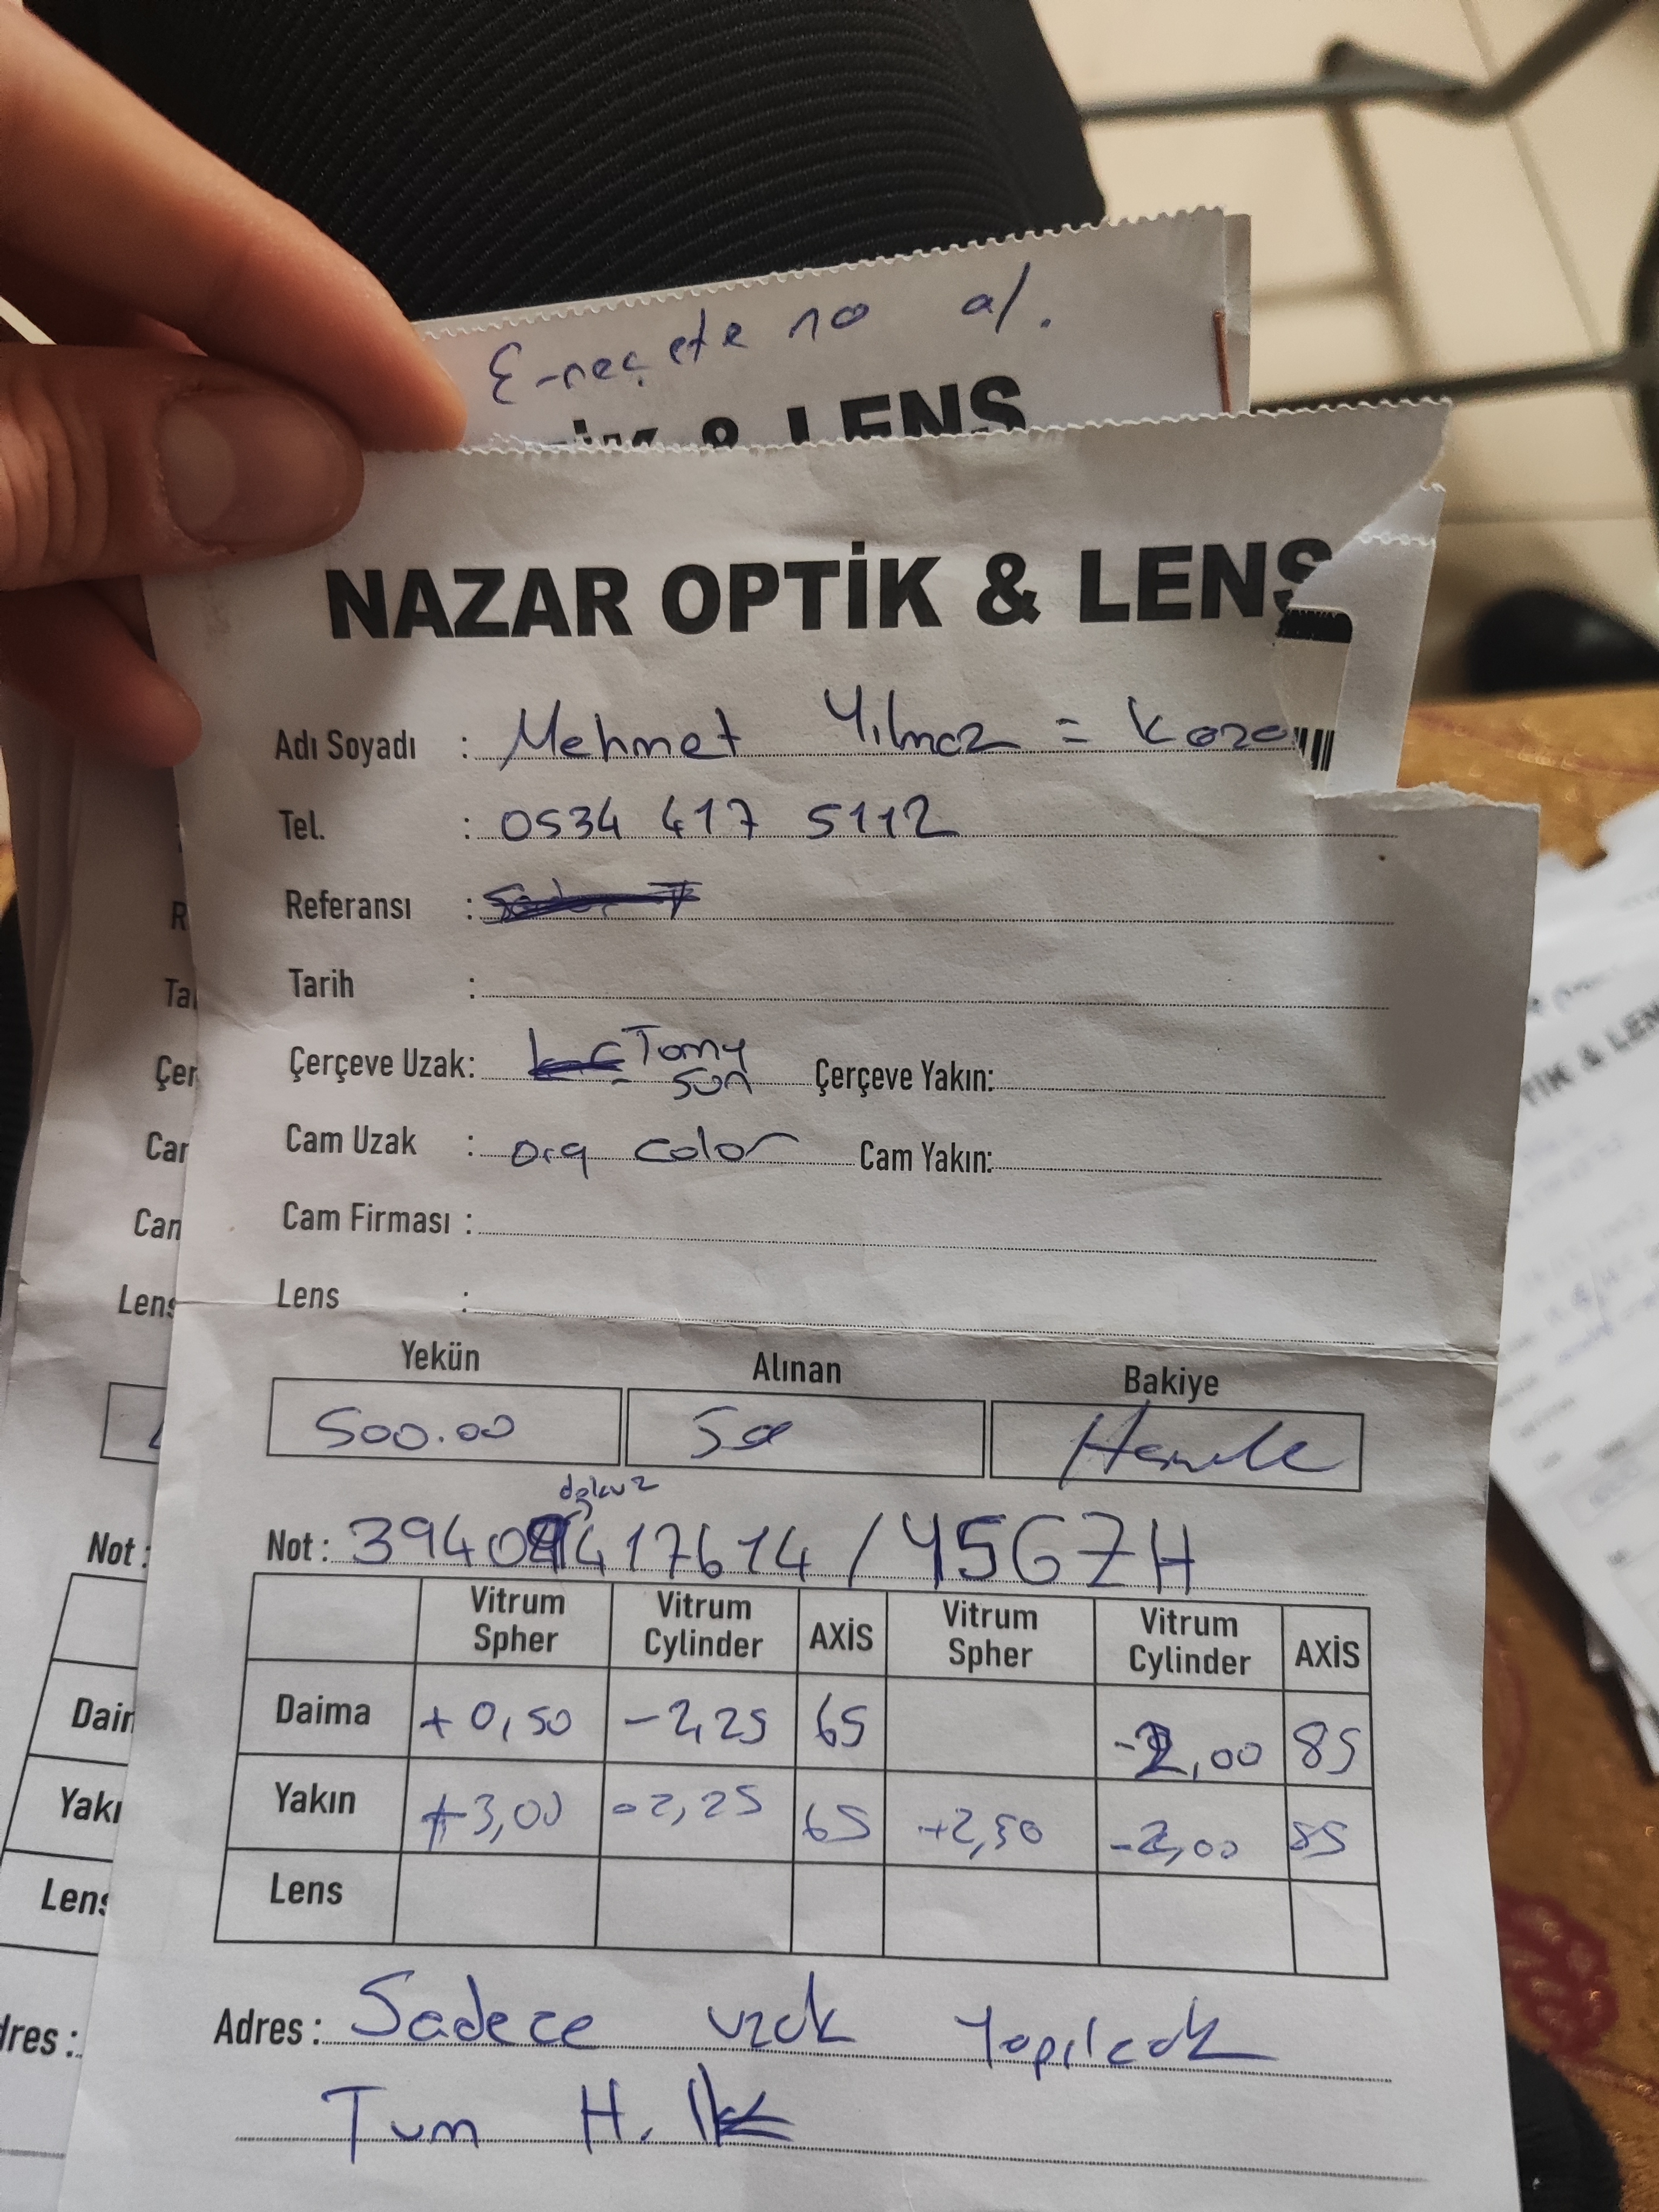 E-reçete no al.
& LENS
NAZAR OPTİK & LENS
Adı Soyadı : Mehmet Yılmaz =
Tel. : 0534 417 5112
Referansı :
Tarih :
Çerçeve Uzak: Tomy son Çerçeve Yakın:
Cam Uzak : org color Cam Yakın:
Cam Firması :
Lens :
Yekün Alınan Bakiye
500.00
dokuz
Not : 39409417614 / Y5GZH
Vitrum Spher Vitrum Cylinder AXİS Vitrum Spher Vitrum Cylinder AXİS
Daima +0,50 -2,25 65 -2,00 85
Yakın +3,00 -2,25 65 +2,50 -2,00 85
Lens
Adres : Sadece uzak Yapılcak
Tum H.
TİK & LEN
Not :
Lens